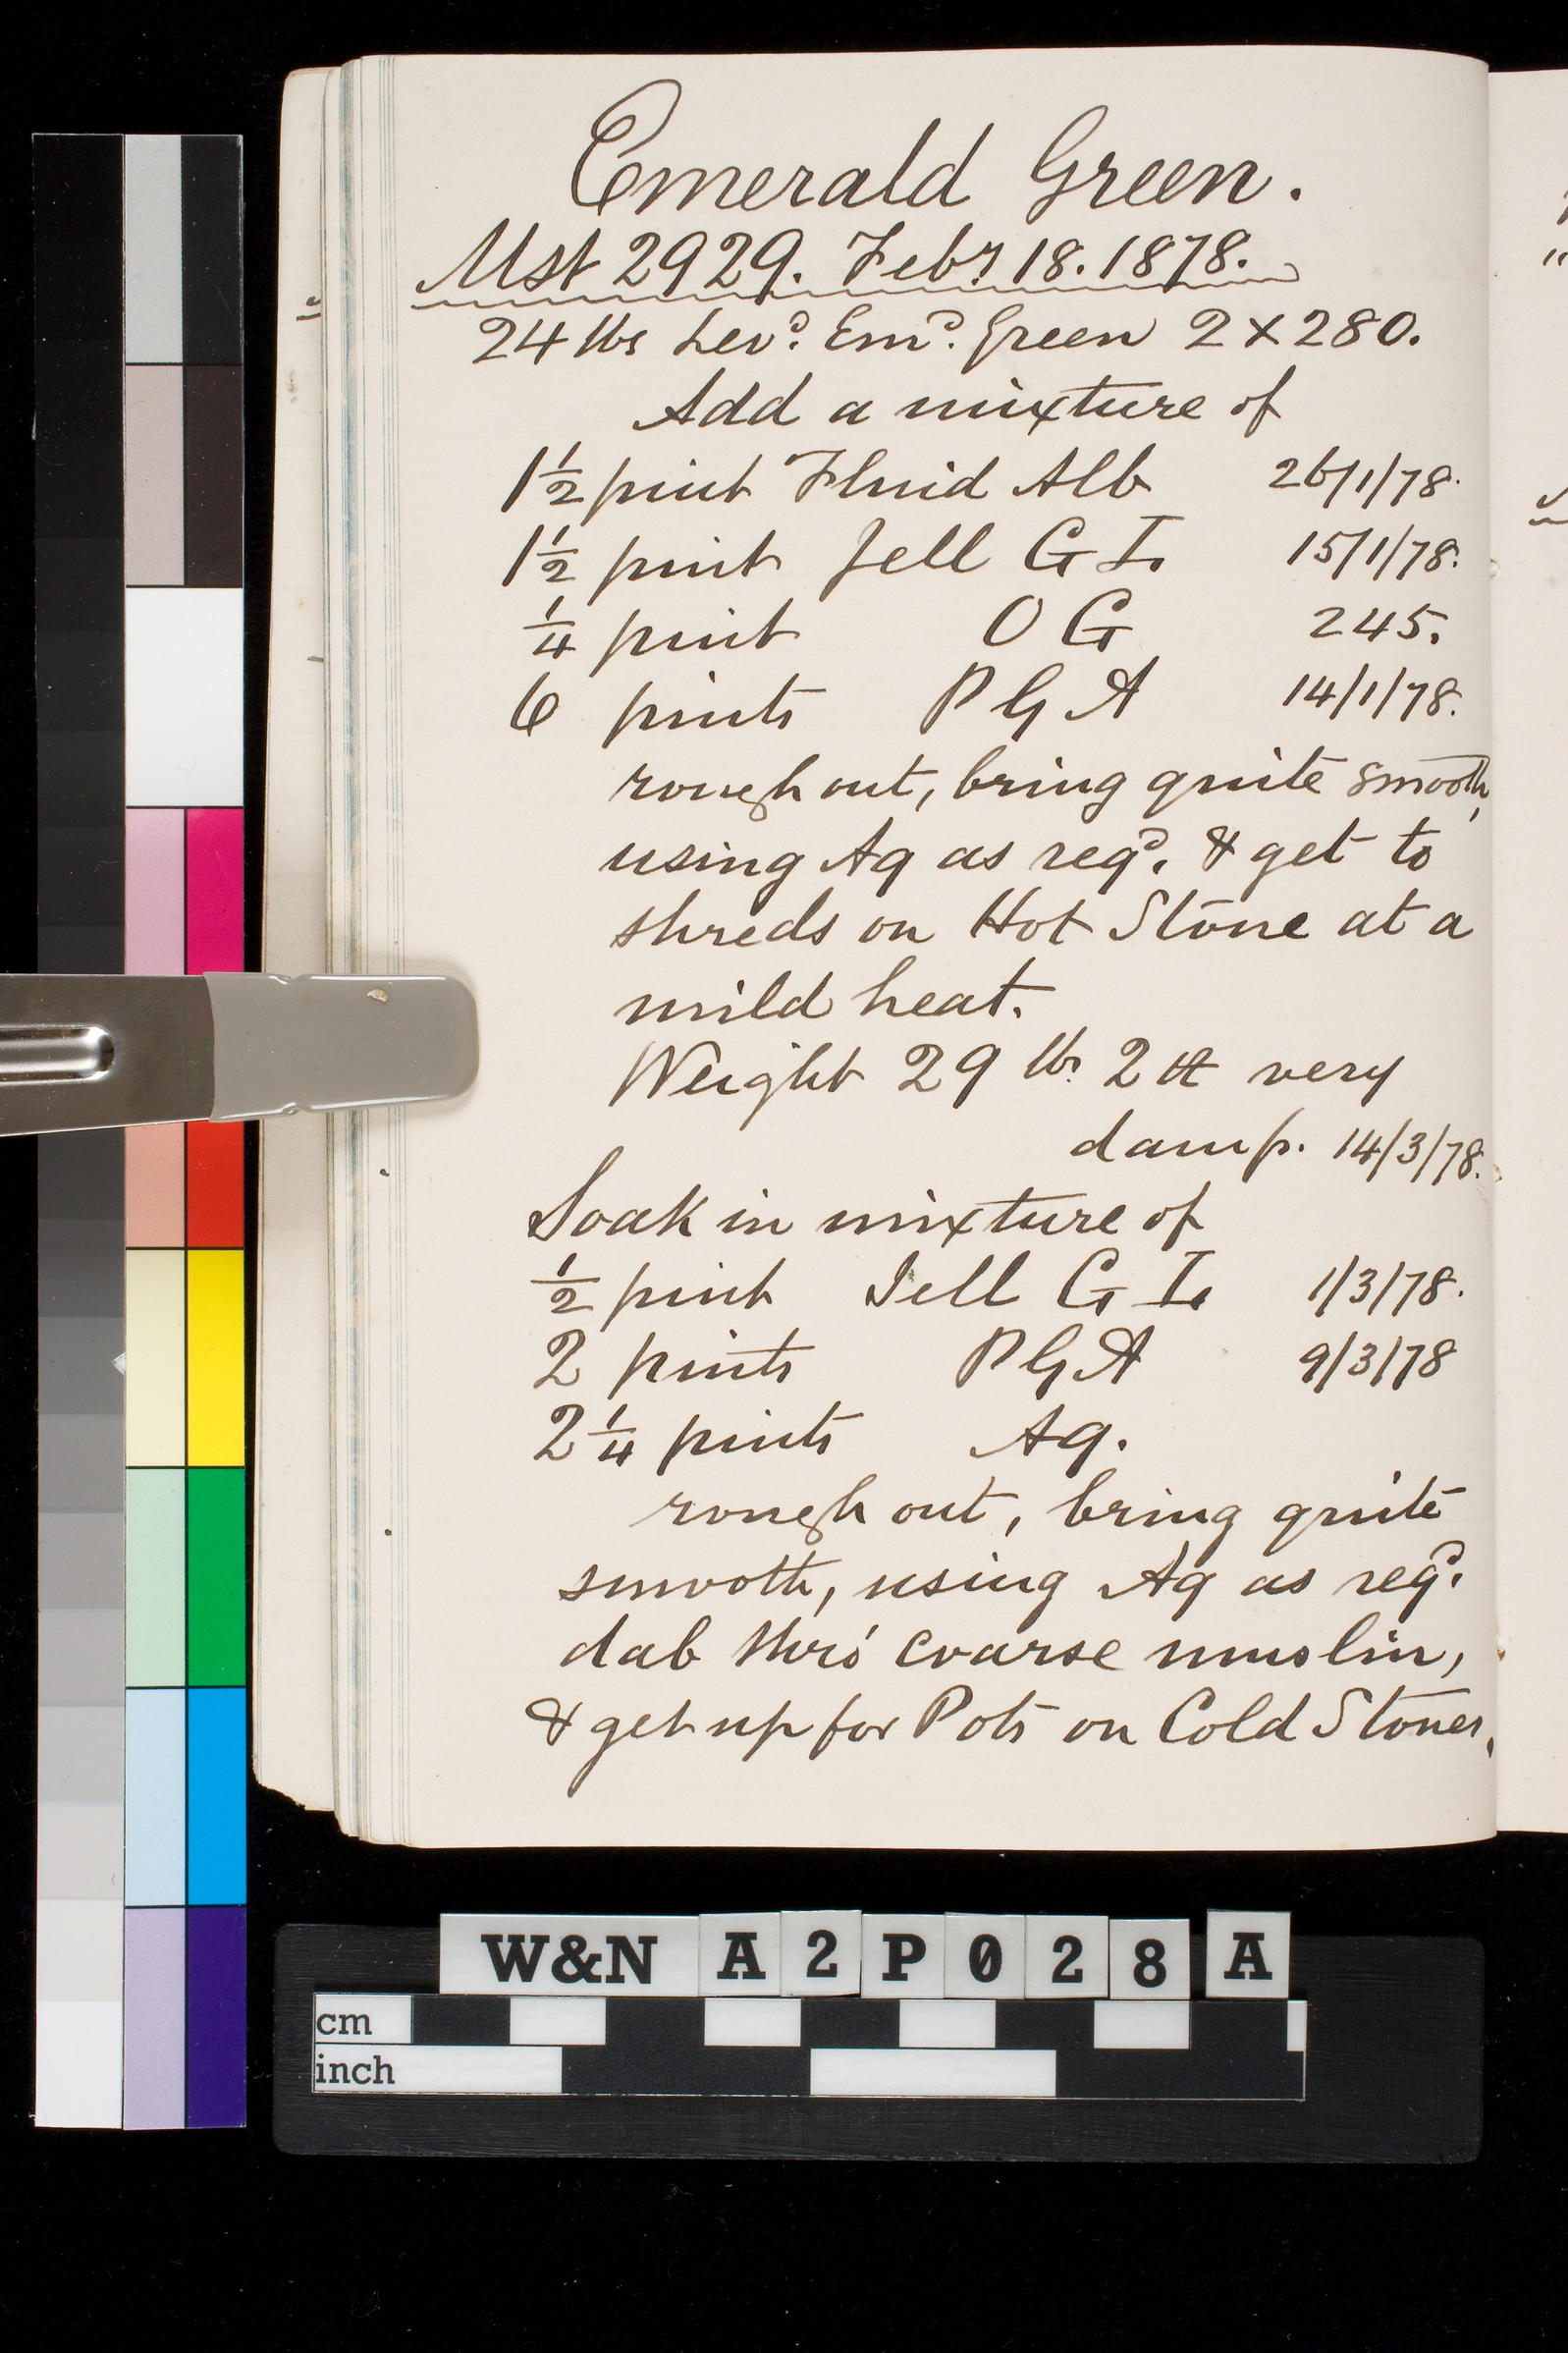 Emerald Green.
Mst 2929. Febry 18. 1878.
24 lbs Levd. Emd. Green 2 x 280.
Add a mixture of
1½ pint Fluid Alb 26/1/78.
1½ pint Jell G I. 15/1/78.
¼ pint O G 245.
6 pints P G A 14/1/78.
rough out, bring quite smooth,
using Aq as reqd. & get to
shreds on Hot Stone at a
mild heat.
Weight 29 lbs. 2 very
damp. 14/3/78.
Soak in mixture of
½ pint Jell G I. 1/3/78.
2 pints P G A 9/3/78
2¼ pints Aq.
rough out, bring quite
smooth, using Aq as reqd.
dab thro' coarse muslin,
& get up for Pots on Cold Stones.
W&N A2P028A
cm
inch